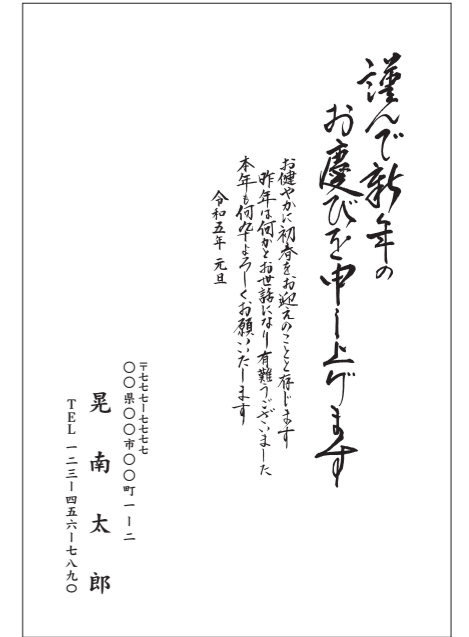 謹んで新年の
お慶びを申し上げます
お健やかに初春をお迎えのことと存じます
昨年は何かとお世話になり有難うございました
本年も何卒よろしくお願いいたします
令和五年 元旦
〒七七七ー七七七七
〇〇県〇〇市〇〇町一ー二
晃南太郎
TEL 一二三ー四五六ー七八九〇